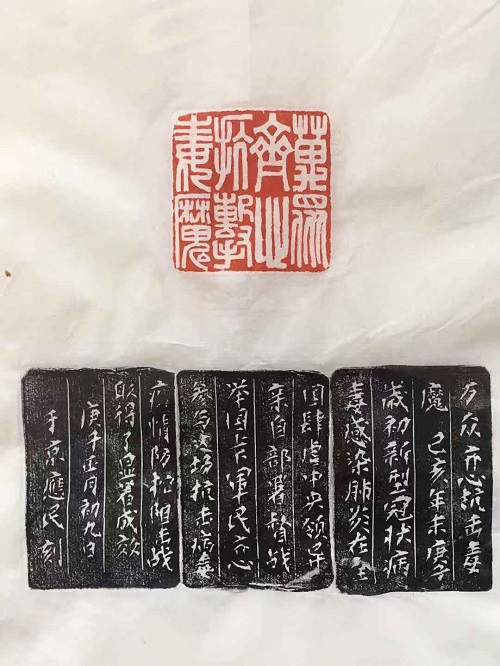 萬眾
齊心
抗擊
毒魔
万众齐心抗击毒
魔 己亥年末庚子
歲初新型冠状病
毒感染肺炎在全
国肆虐中央领导
亲自部署督战
举国上下軍民齐心
参与这场抗击病毒
疫情防控阻击战
取得了显着成效
庚子正月初九日
于京應民刻